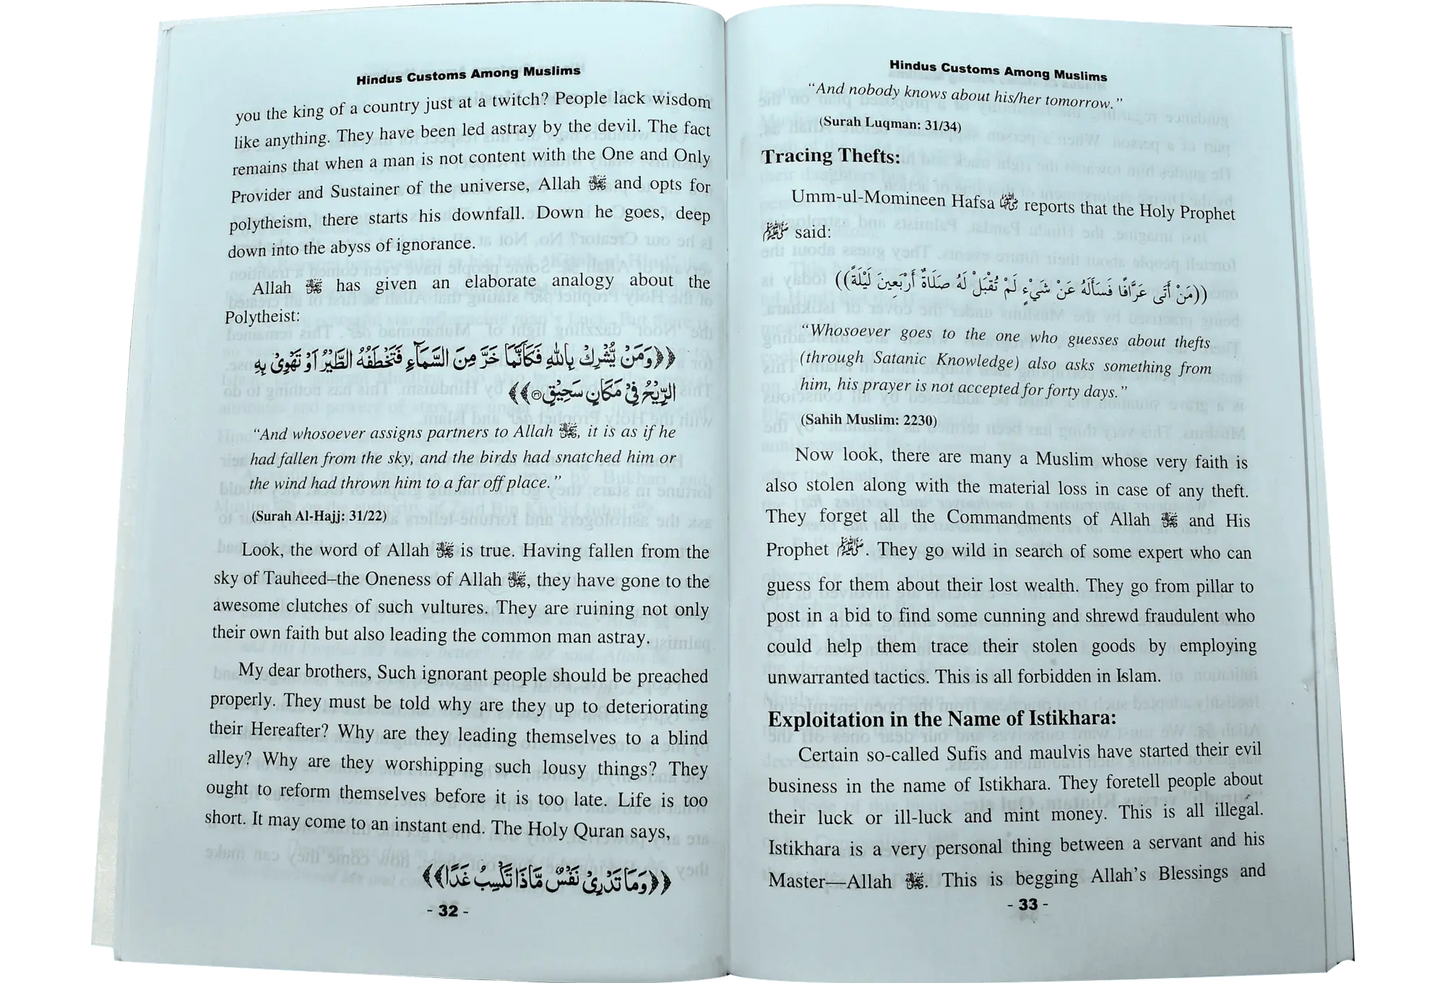 Hindus Customs Among Muslims
you the king of a country just at a twitch? People lack wisdom
like anything. They have been led astray by the devil. The fact
remains that when a man is not content with the One and Only
Provider and Sustainer of the universe, Allah ﷻ and opts for
polytheism, there starts his downfall. Down he goes, deep
down into the abyss of ignorance.
Allah ﷻ has given an elaborate analogy about the
Polytheist:
﴿﴿وَمَنْ يُّشْرِكْ بِاللّٰهِ فَكَاَنَّمَا خَرَّ مِنَ السَّمَآءِ فَتَخْطَفُهُ الطَّيْرُ اَوْ تَهْوِيْ بِهِ
الرِّيْحُ فِيْ مَكَانٍ سَحِيْقٍ﴾﴾
“And whosoever assigns partners to Allah ﷻ, it is as if he
had fallen from the sky, and the birds had snatched him or
the wind had thrown him to a far off place.”
(Surah Al-Hajj: 31/22)
Look, the word of Allah ﷻ is true. Having fallen from the
sky of Tauheed–the Oneness of Allah ﷻ, they have gone to the
awesome clutches of such vultures. They are ruining not only
their own faith but also leading the common man astray.
My dear brothers, Such ignorant people should be preached
properly. They must be told why are they up to deteriorating
their Hereafter? Why are they leading themselves to a blind
alley? Why are they worshipping such lousy things? They
ought to reform themselves before it is too late. Life is too
short. It may come to an instant end. The Holy Quran says,
﴿﴿وَمَا تَدْرِيْ نَفْسٌ مَّاذَا تَكْسِبُ غَدًا﴾﴾
- 32 -
Hindus Customs Among Muslims
“And nobody knows about his/her tomorrow.”
(Surah Luqman: 31/34)
Tracing Thefts:
Umm-ul-Momineen Hafsa رضي الله عنها reports that the Holy Prophet
ﷺ said:
((مَنْ أَتَى عَرَّافًا فَسَأَلَهُ عَنْ شَيْءٍ لَمْ تُقْبَلْ لَهُ صَلَاةٌ أَرْبَعِينَ لَيْلَةً))
“Whosoever goes to the one who guesses about thefts
(through Satanic Knowledge) also asks something from
him, his prayer is not accepted for forty days.”
(Sahih Muslim: 2230)
Now look, there are many a Muslim whose very faith is
also stolen along with the material loss in case of any theft.
They forget all the Commandments of Allah ﷻ and His
Prophet ﷺ. They go wild in search of some expert who can
guess for them about their lost wealth. They go from pillar to
post in a bid to find some cunning and shrewd fraudulent who
could help them trace their stolen goods by employing
unwarranted tactics. This is all forbidden in Islam.
Exploitation in the Name of Istikhara:
Certain so-called Sufis and maulvis have started their evil
business in the name of Istikhara. They foretell people about
their luck or ill-luck and mint money. This is all illegal.
Istikhara is a very personal thing between a servant and his
Master—Allah ﷻ. This is begging Allah’s Blessings and
- 33 -